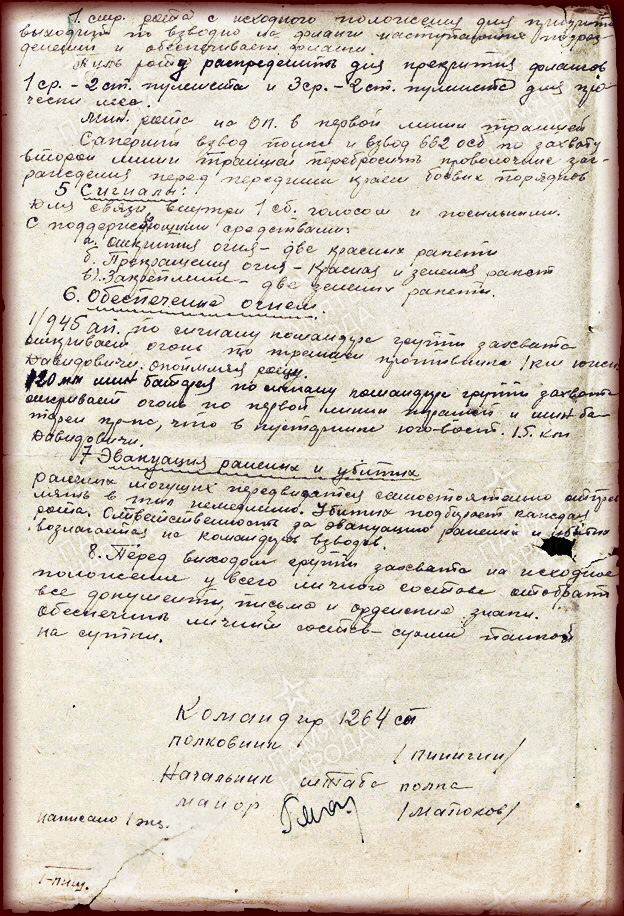 1. стр. рота с исходного положения для прикрыт
выходит по взводно на фланги наступающ подраз
делений и обеспечивает фланги.
Пуль роту распределить для прекрития флангов
1 ср. – 2 ст. пулемета и 3 ср. – 2 ст. пулемета для про
чески леса.
Мин. рота на ОП. в первой линии траншей
Саперный взвод полка и взвод 662 осб по захвату
второй линии траншей перебросить проволочные заг-
раждения перед передним краем боевых порядков
5 Сигналы:
Для связи внутри 1 сб. голосом и посильными.
С поддерживающими средствами:
а. Открытия огня – две красных ракеты
б. Прекращения огня – красная и зеленая ракет
в) Закрепления – две зеленых ракеты.
6. Обеспечение огнем.
1/945 ап. по сигналу командира группы захвата
открывает огонь по траншеи противника 1 км южн
Давидовичи. опоимлял рощу.
120 мм мин батарея по сигналу командира группы захвата
открывает огонь по первой линии траншей и мин ба-
тареи пр-ка, что в кустарнике юго-вост. 1.5 км
Давидовичи.
7 Эвакуация раненых и убитых
раненых могущих передвигатся самостоятельно отпрв
лять в тыл немедлено. Убитых подбирает каждая
рота. Ответственность за эвакуацию раненых и убитых
возлагается на командиров взводов.
8. Перед выходом групп захвата на исходное
положение у всего личного состава отобрать
все документы, письма и орденские знаки.
Обеспечить личный состав сухим пайком
на сутки.
Командир 1264 сп
полковник /Пиничин/
Начальник штаба полка
майор /Матюков/
написано 1 экз.
ПАМЯТЬ
НАРОДА